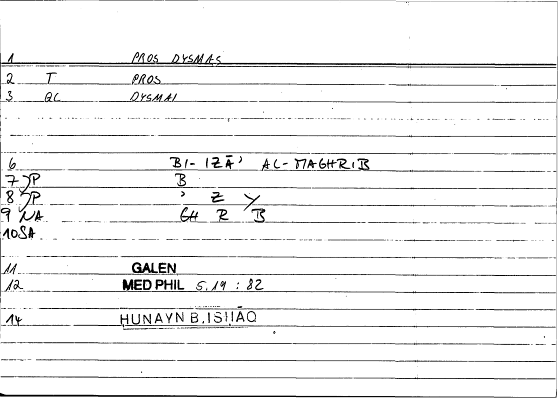 1 PROS DYSMAS
2 T PROS
3 QC DYSMAI
6 BI- IZĀ' AL-MAGHRIB
7 P B
8 P ' Z Y
9 NA GH R B
10 SA
11 GALEN
12 MED PHIL 5.19 : 82
14 HUNAYN B. ISHĀQ